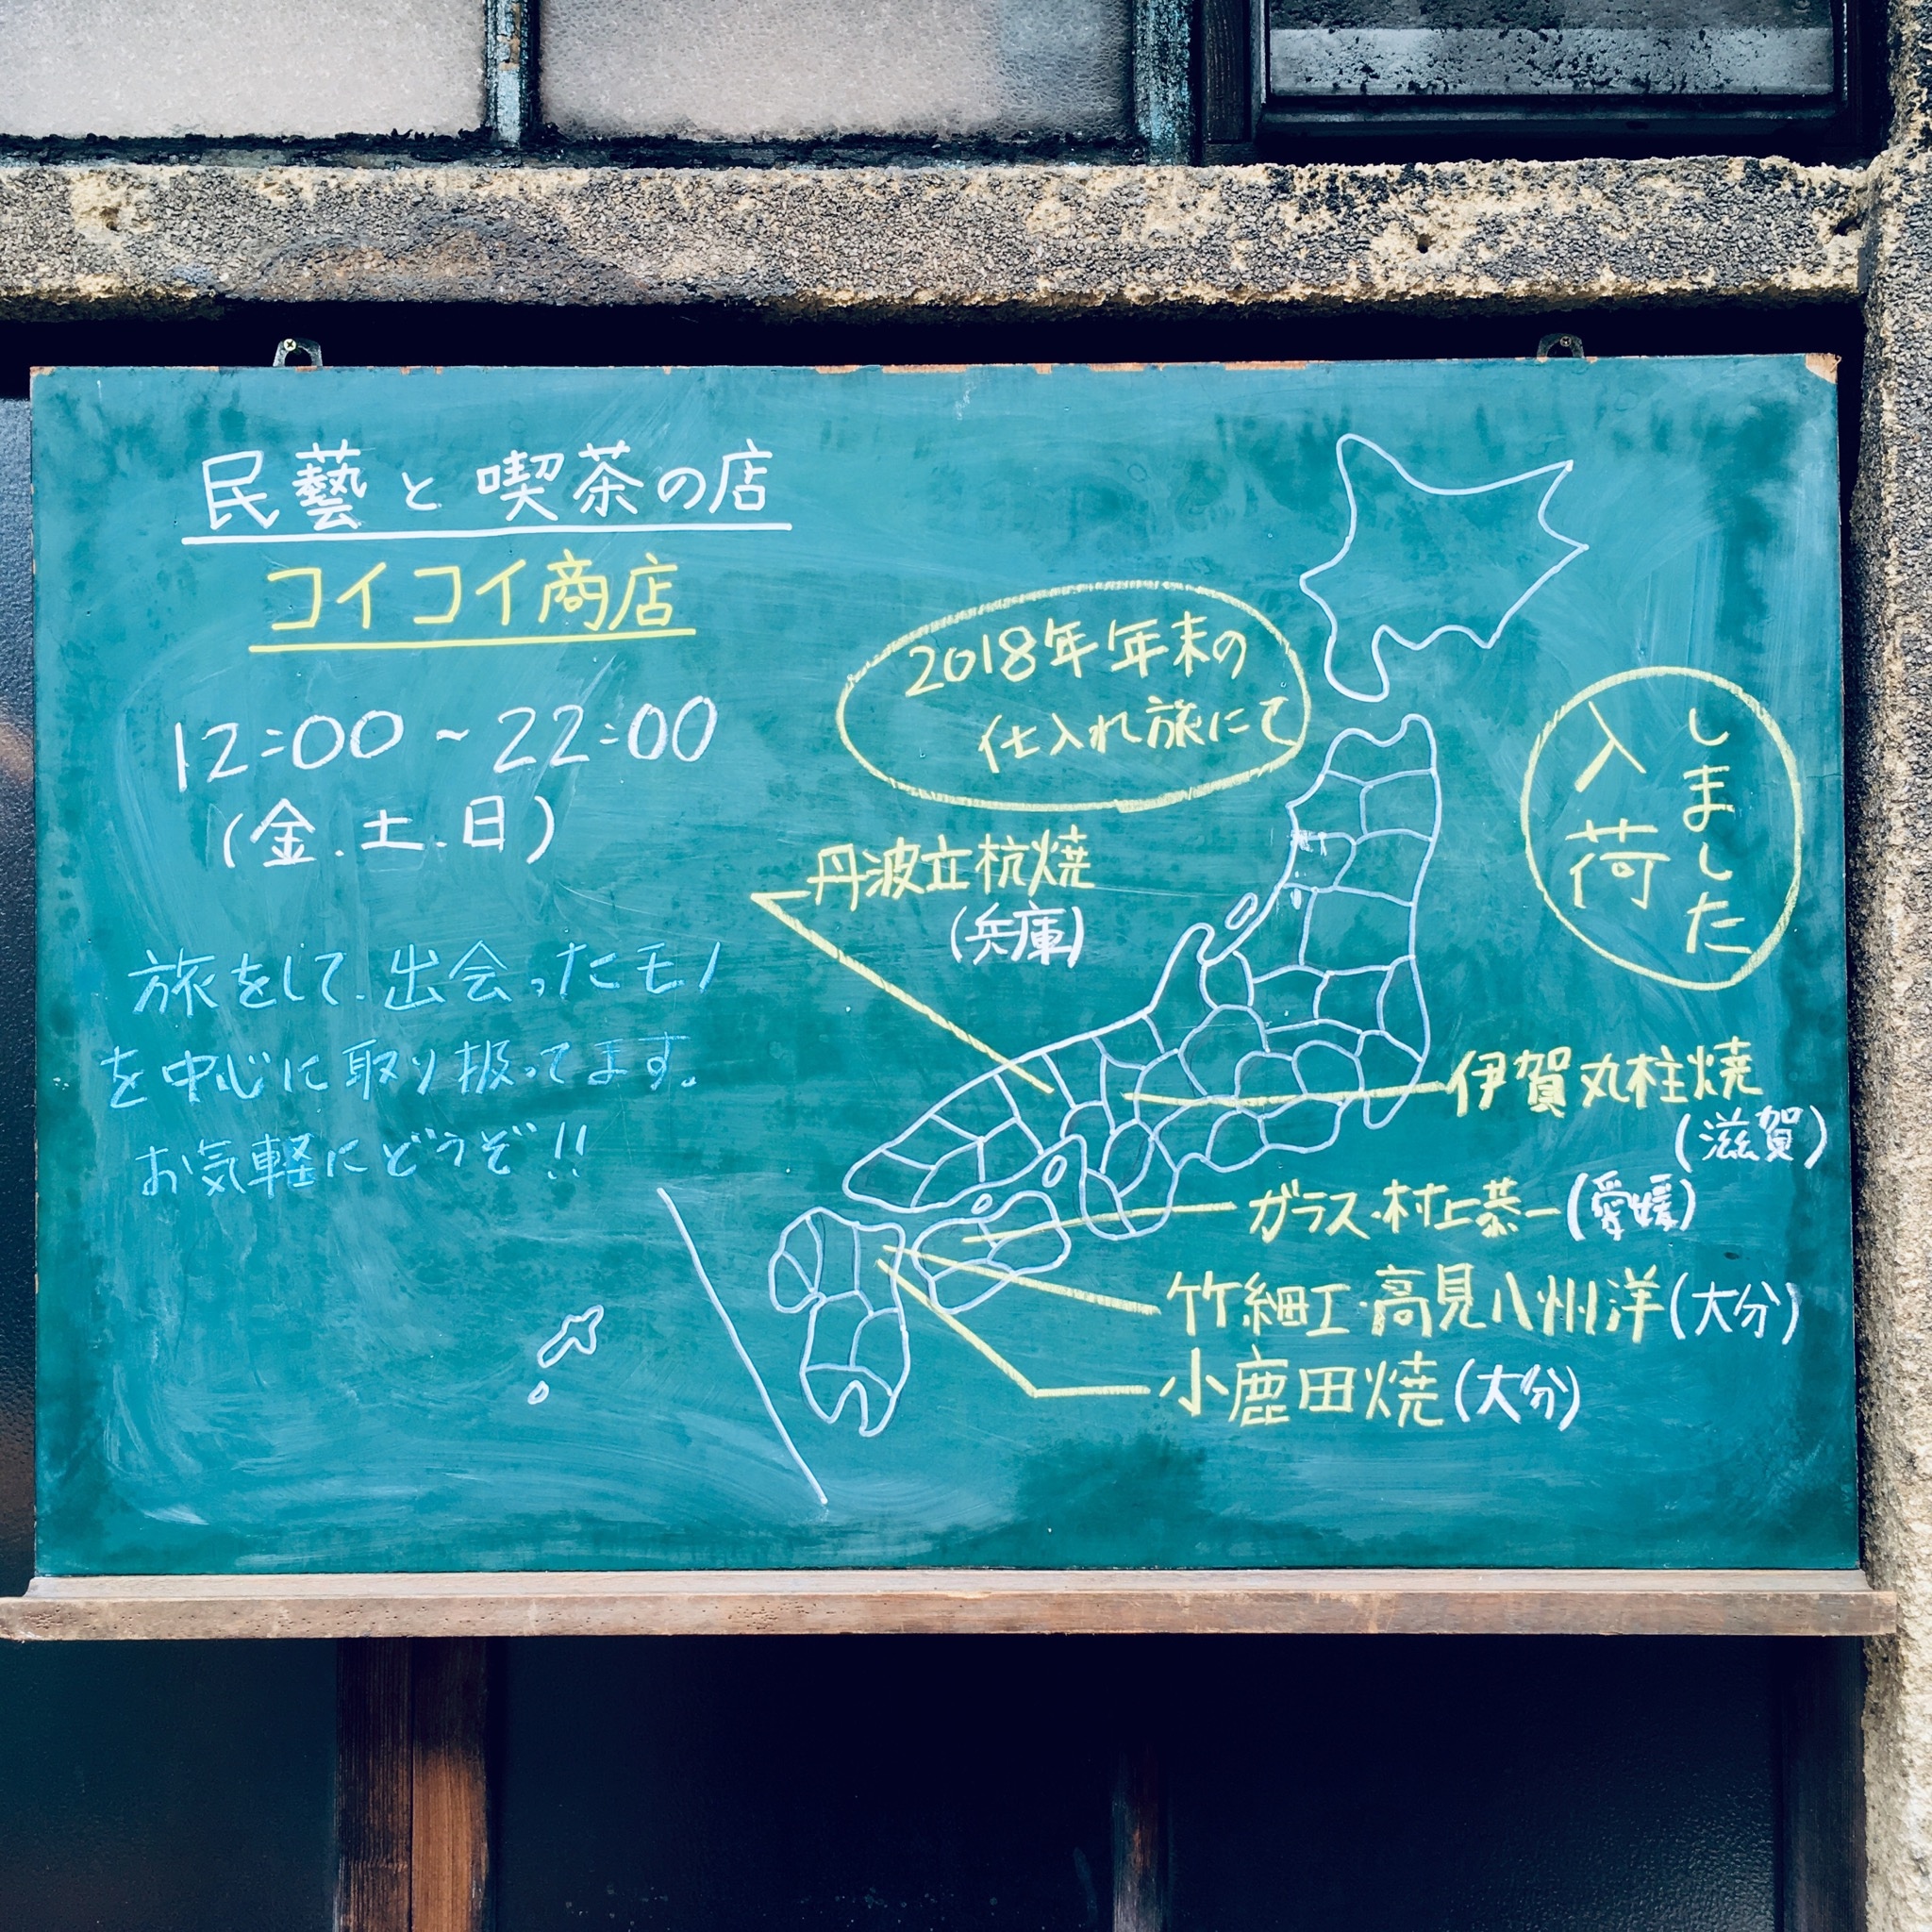 民藝と喫茶の店
コイコイ商店
12:00~22:00
(金.土.日)
旅をして、出会ったモノ
を中心に取り扱ってます。
お気軽にどうぞ!!
2018年年末の
仕入れ旅にて
入荷
しました
丹波立杭焼
(兵庫)
伊賀丸柱焼
(滋賀)
ガラス・村上恭一(愛媛)
竹細工・高見八州洋(大分)
小鹿田焼(大分)